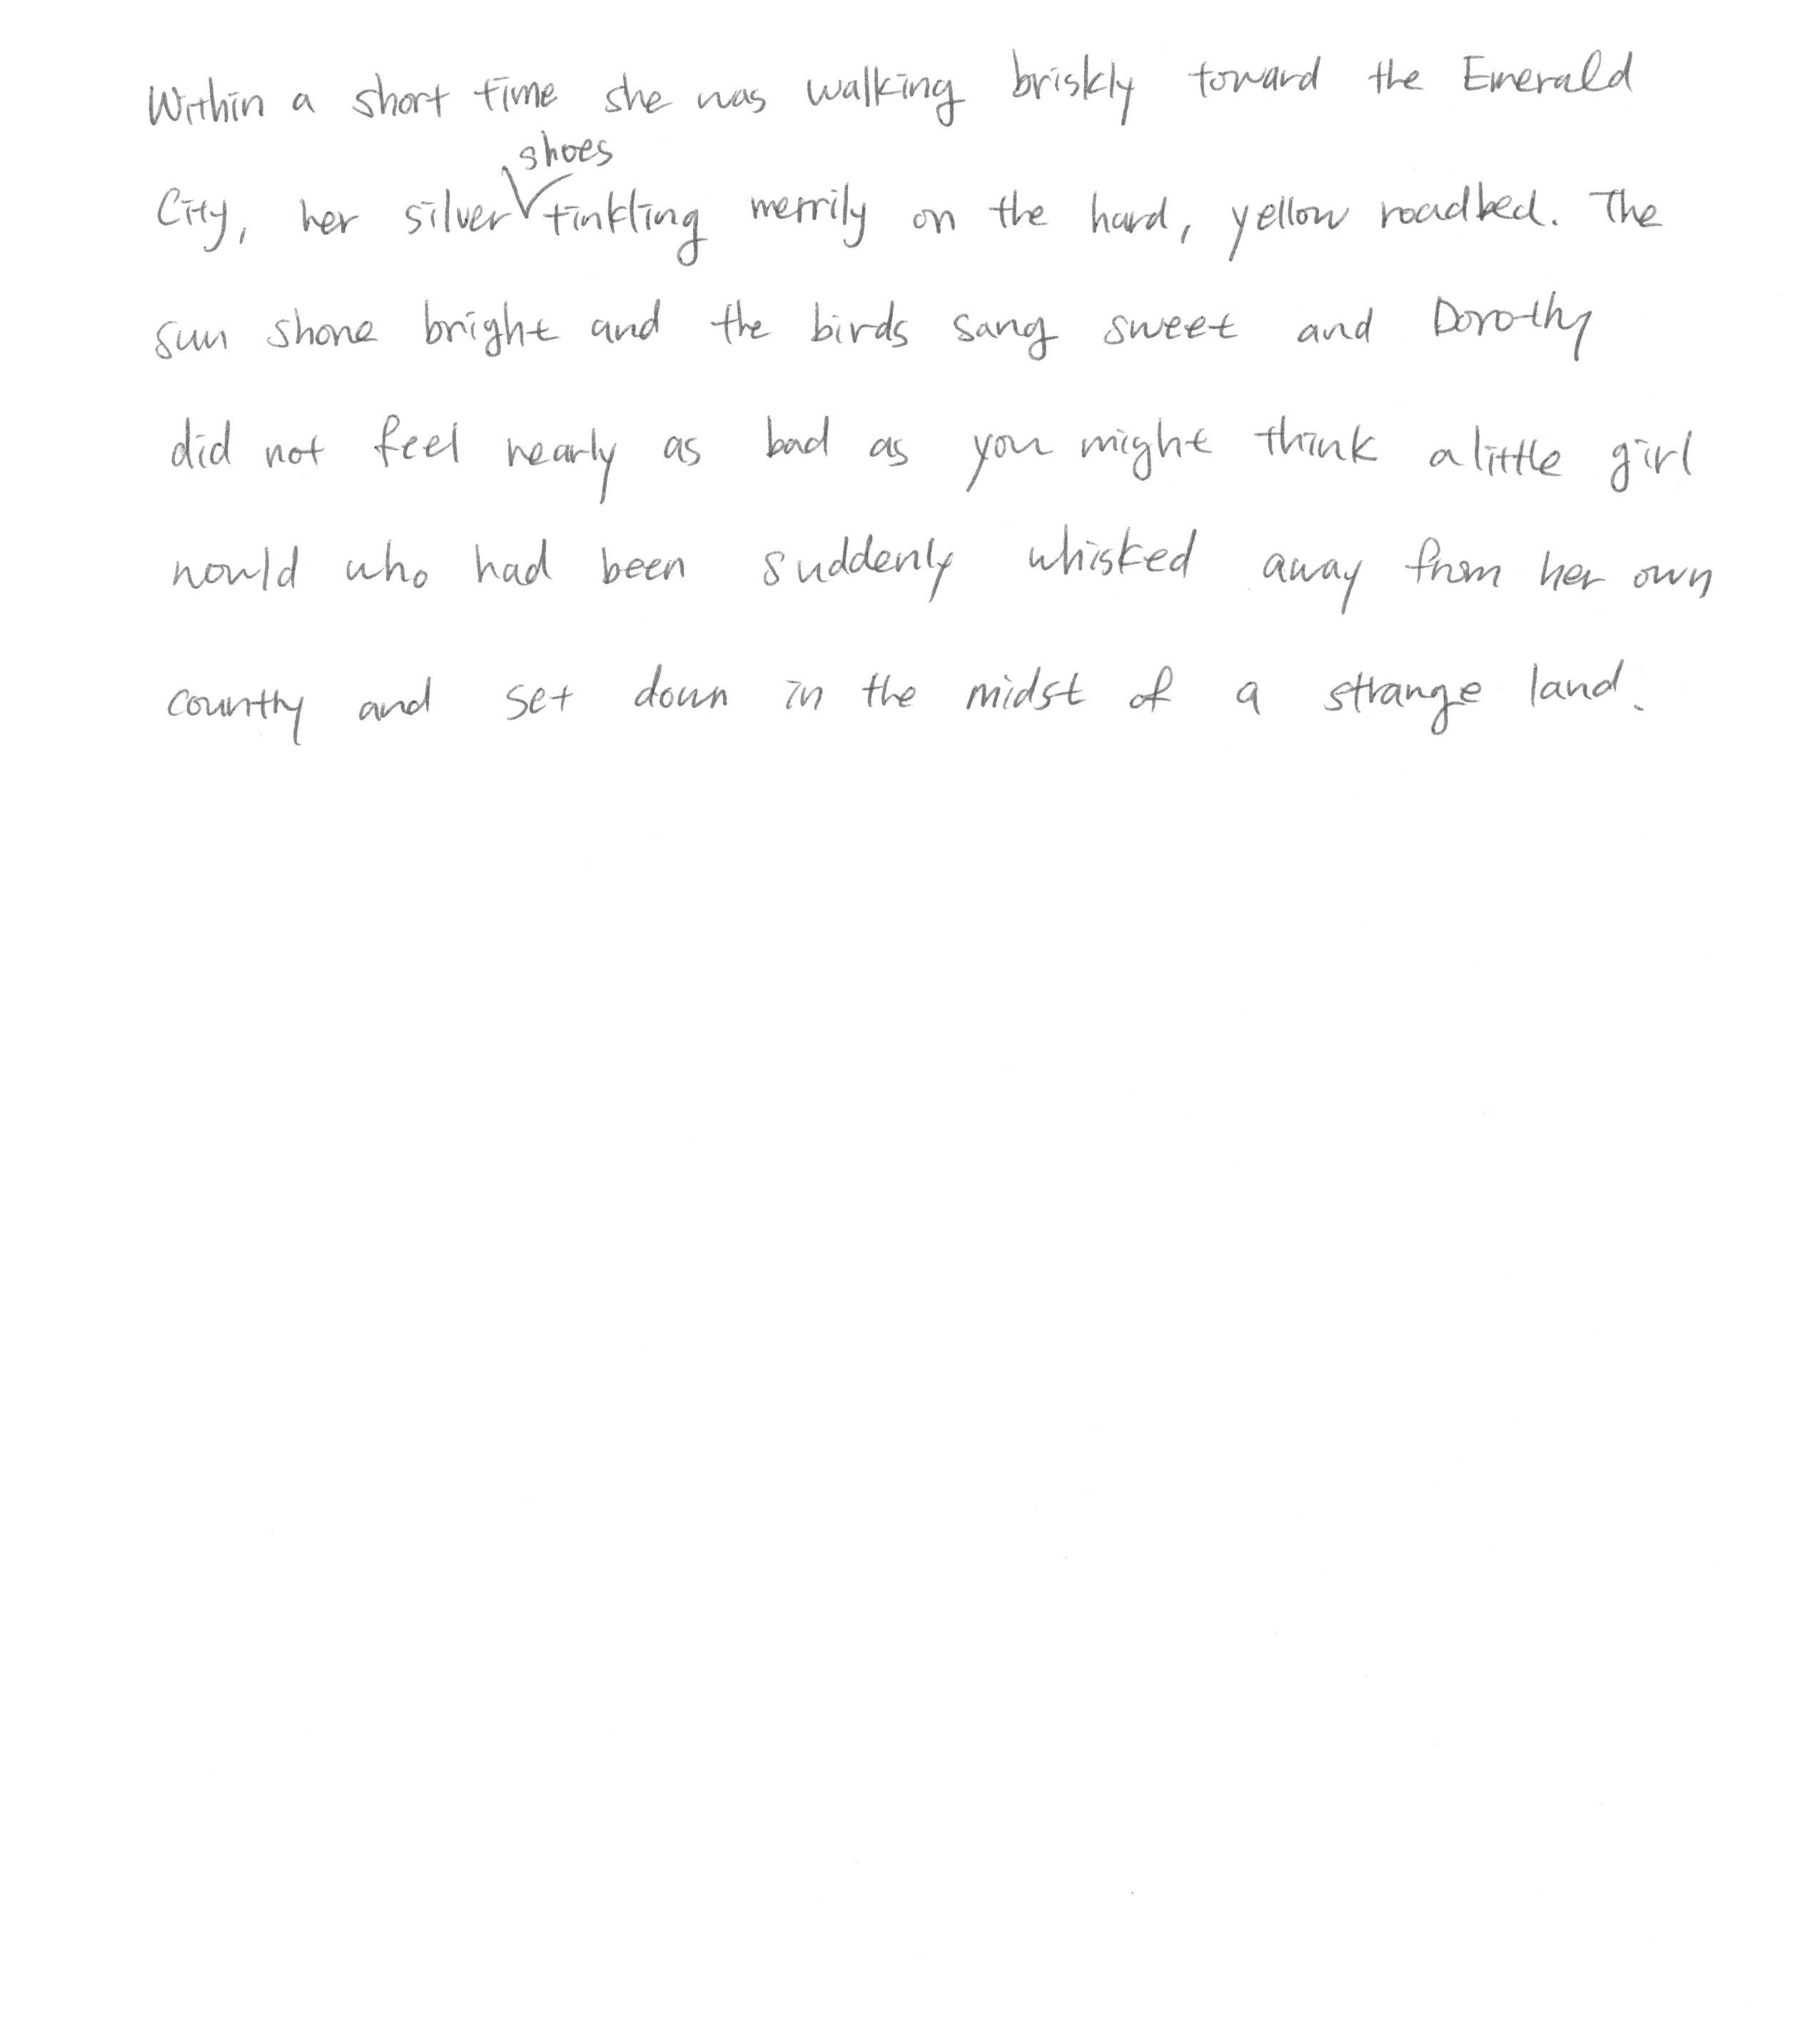 Within a short time she was walking briskly toward the Emerald
City, her silver shoes tinkling merrily on the hard, yellow roadbed. The
sun shone bright and the birds sang sweet and Dorothy
did not feel nearly as bad as you might think a little girl
would who had been suddenly whisked away from her own
country and set down in the midst of a strange land.